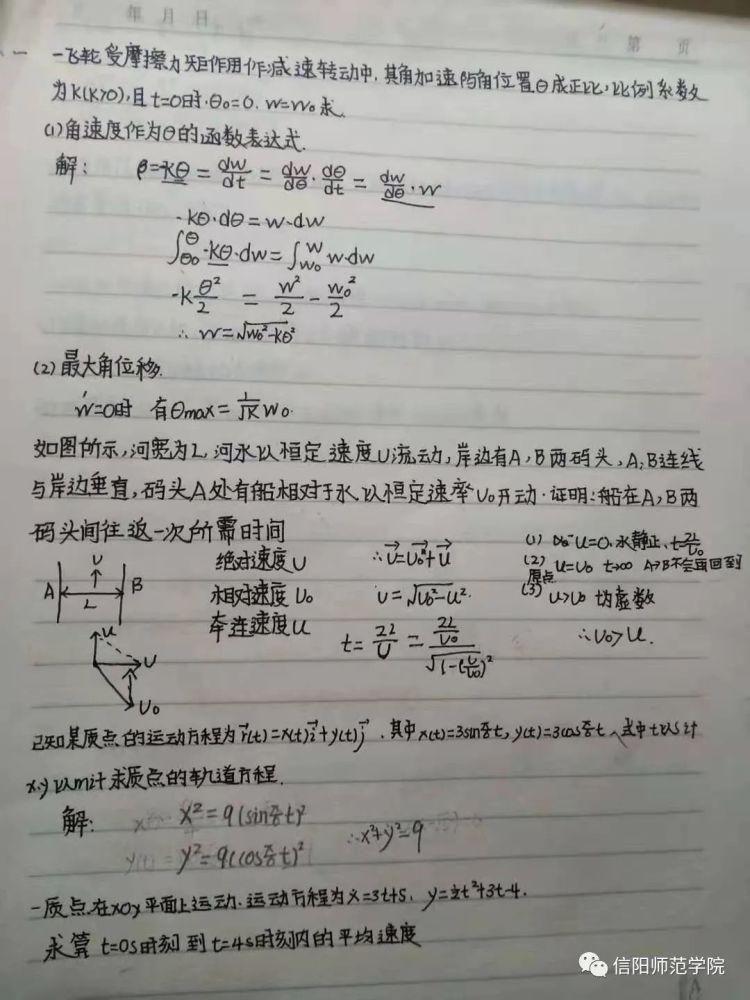 年 月 日
第 页
一飞轮受摩擦力矩作用作减速转动中,其角加速与角位置θ成正比,比例系数
为K(K>0),且t=0时.θ₀=0. w=w₀求.
(1)角速度作为θ的函数表达式.
解: β=-kθ = dw/dt = dw/dθ · dθ/dt = dw/dθ · w
-kθ·dθ = w·dw
∫_θ₀^θ -kθ·dw = ∫_w₀^w w·dw
-k θ²/2 = w²/2 - w₀²/2
∴ w=√(w₀²-kθ²)
(2)最大角位移.
w=0时 有θmax= 1/√K w₀.
如图所示,河宽为L,河水以恒定速度U流动,岸边有A,B两码头,A,B连线
与岸边垂直,码头A处有船相对于水以恒定速率U₀开动.证明:船在A,B两
码头间往返一次所需时间
A U L B
绝对速度U
相对速度U₀
牵连速度U
∴ U⃗=U₀⃗+u⃗
U=√(U₀²-u²).
t= 2L/U = (2L/U₀)/√(1-(u/U₀)²)
(1) u=0.水静止、t=2L/U₀
(2) u=U₀ t→∞ A→B不会再回到
原点
(3) u>U₀ 均虚数
∴U₀>u.
u U
U₀
已知某质点的运动方程为r⃗(t)=x(t)i⃗+y(t)j⃗.其中x(t)=3sin π/6 t, y(t)=3cos π/6 t,式中t以s计
x,y以m计求质点的轨道方程.
解: x²=9(sin π/6 t)²
y²=9(cos π/6 t)²
∴x²+y²=9
一质点在xoy平面上运动.运动方程为x=3t+5, y=½t²+3t-4.
求算 t=0s时刻到t=4s时刻内的平均速度
信阳师范学院